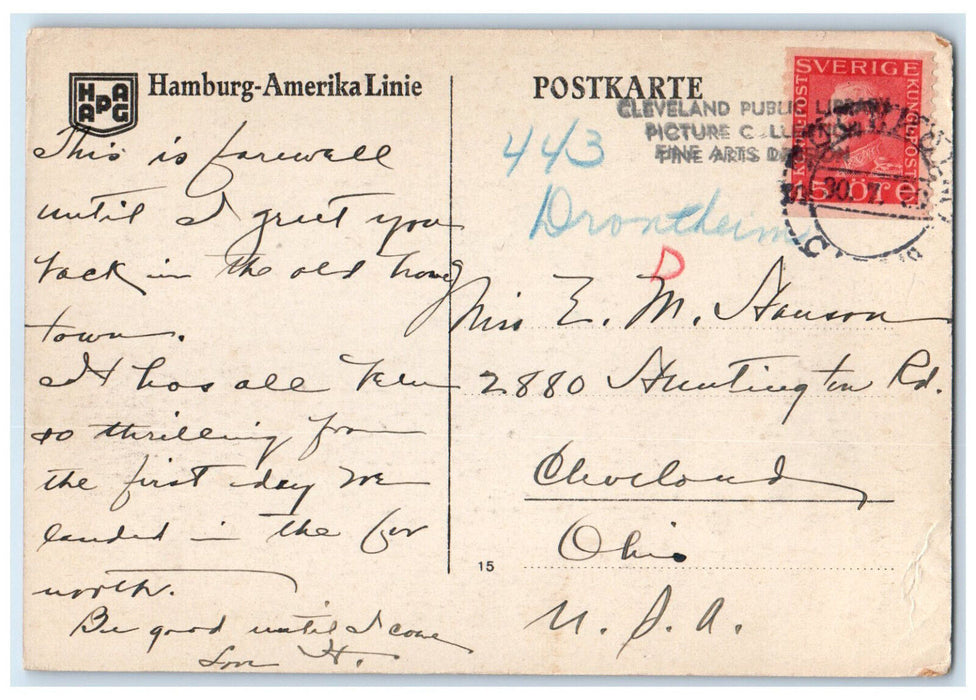 HAPAG
Hamburg-Amerika Linie
This is farewell
until I greet you
back in the old home
town.
It has all been
so thrilling from
the first day we
landed in the far
north.
Be good until I come
Love H.
POSTKARTE
CLEVELAND PUBLIC LIBRARY
PICTURE COLLECTION
FINE ARTS DIVISION
443
Drontheim
D
SVERIGE
KUNGL. POST
15 ÖRE
30. 7.
Miss E. M. Hanson
2880 Huntington Rd.
Cleveland
Ohio
U. S. A.
15